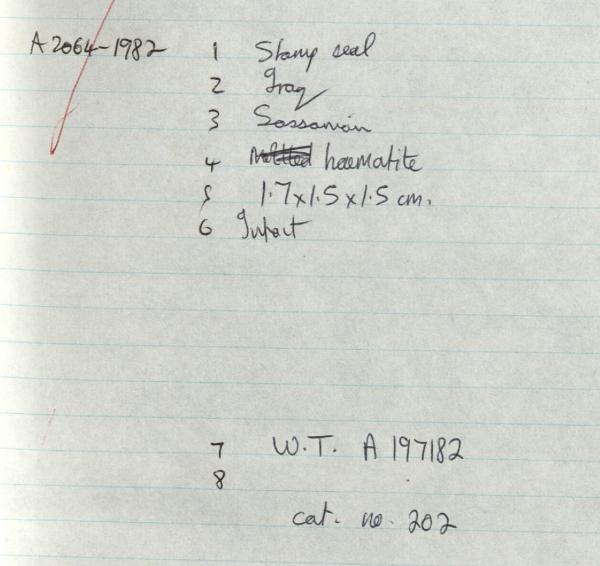 A 2064-1982 1 Stamp seal
2 Iraq
3 Sassanian
4 haematite
5 1.7x1.5x1.5 cm.
6 Intact
7 W.T. A 197182
8
cat. no. 202